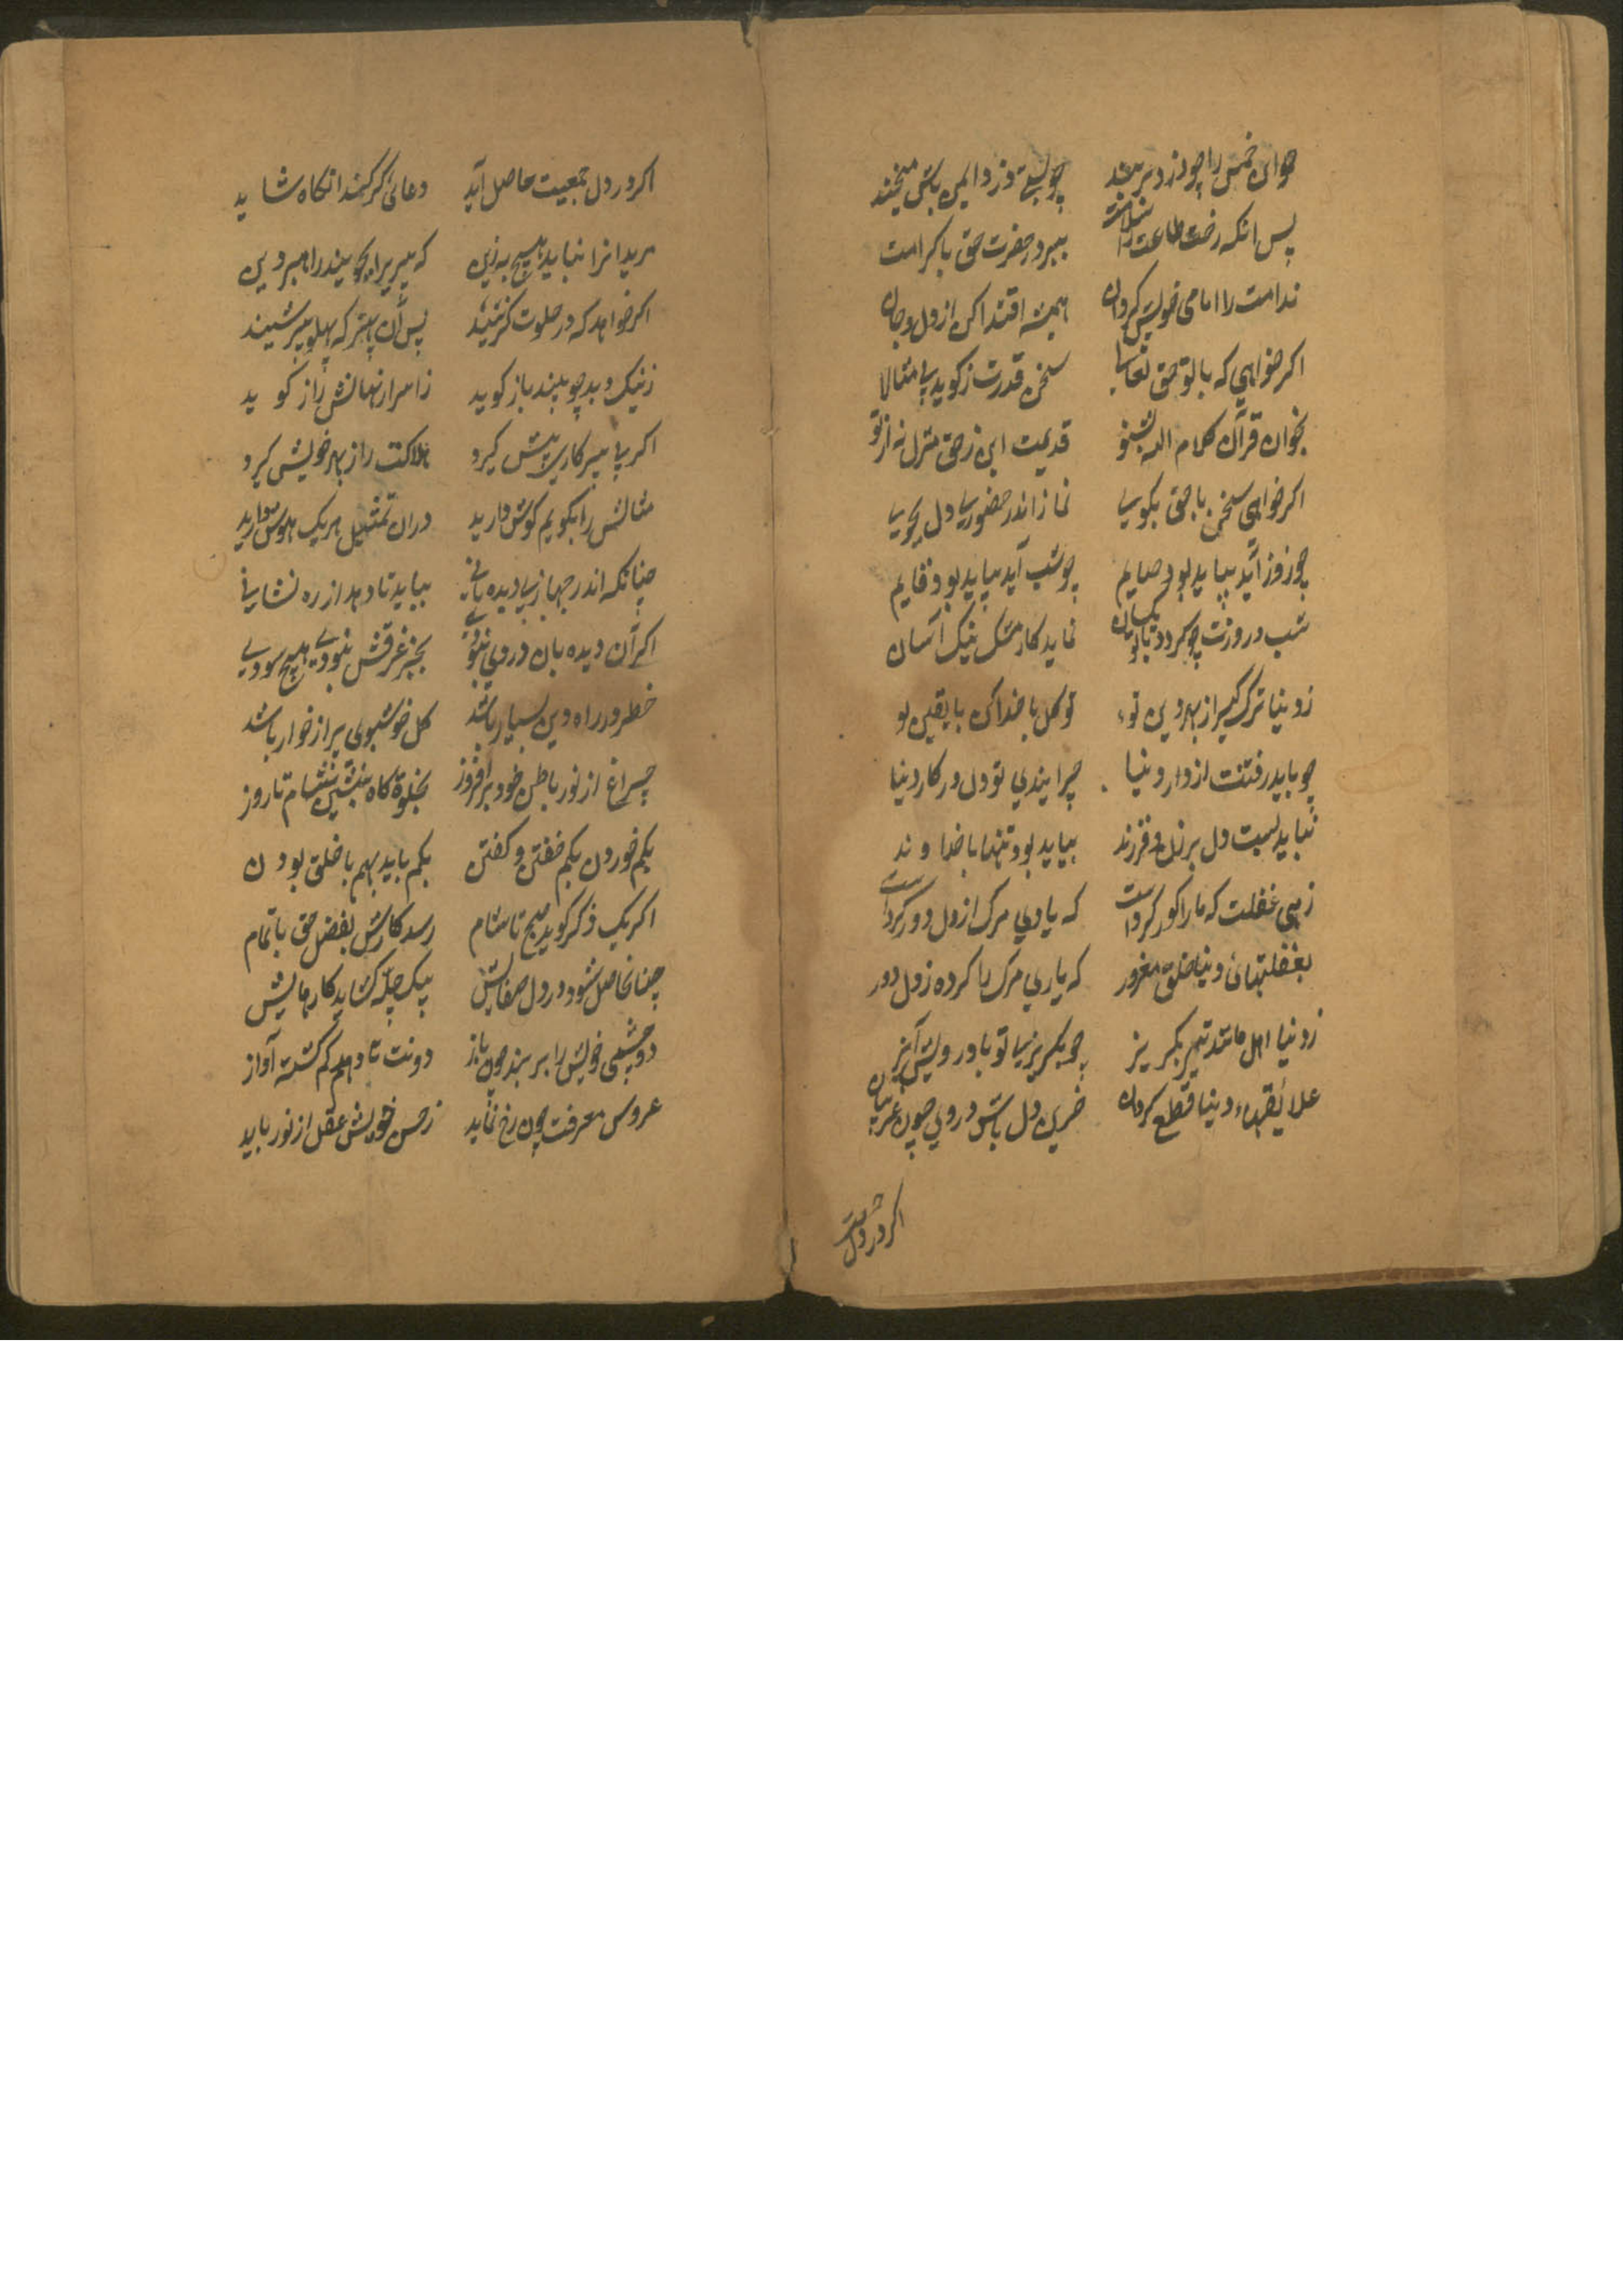 حواس خمس را چو دزد بربند چو بستی دزد ایمن باش میخند
پس انکه رخت طاعت را سلامت ببر در حضرت حق باکرامت
ندامت را امامی خویش کردان همیشه اقتدا کن از دل و جان
اکر خواهی که با تو حق تعالی سخن قدرت ز کوید بی مثالا
بخوان قرآن کلام الله بشنو قدیمت این ز حق منزل نه از تو
اکر خواهی سخن با حق بکویی نماز اندر حضوری دل بجویی
چو روز آید بباید بود صایم چو شب آید بباید بود قایم
شب و روزت چو کردد یکسان نماید کار مشکل نیک آسان
ز دنیا ترک کیر از بهر دین تو توکل با خدا کن با یقین تو
چو باید رفتنت از دار دنیا چرا بندی تو دل در کار دنیا
نباید بست دل بر زن و فرزند بباید بود تنها با خداوند
زهی غفلت که ما را کور کرداست که یادی مرک از دل دور کرداست
بغفلتهائ دنیا خلق مغرور که یادی مرک را کرده ز دل دور
ز دنیا اهل ماتند تیر بکریز چو بکریزی تو با درویش آمیز
علایقهاء دنیا قطع کردان حزین دل باش در وی چون غریبان
اکر در دل جمعیت
اکر در دل جمعیت حاصل آید دعائ کر کند انکاه شاید
مریدانرا نباید هیچ به زین که پیر را بجویند راهبر دین
اکر خواهد که در خلوت کزیند پس آن بهتر که پهلو پیر شیند
ز نیک و بد چو بیند باز کوید ز اسرار نهانش راز کوید
اکر بی پیر کاری پیش کیرد هلاکت را ز بهر خویش کیرد
مثالش را بکویم کوش دارید در ان تمثیل هریک هوش دارید
چنانکه اندر جهازی دیده بانی بباید تا دهد از ره نشانی
اکر آن دیده بان در وی نبودی بجز غرقش نبودی هیچ سودی
خطر در راه دین بسیار باشد کل خوشبوی پر از خار باشد
چراغ از نور باطن خود برافروز بخلوة کاه بنشین شام تا روز
بکم خوردن بکم خفتن و کفتن بکم باید بهم با خلق بودن
اکر یک ذکر کوید صبح تا شام رسد کارش بفضل حق باتمام
چنان حاصل شود در دل صفایش بیک چله کشاید کارهایش
دو چشمی خویش را بربند چون باز دونت تا دهم کم کشته آواز
عروس معرفت چون رخ نماید ز حسن خویش عقل از تو رباید